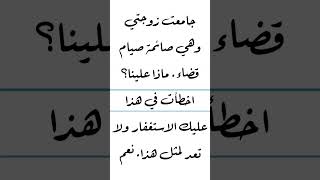 جامعت زوجتي
وهي صائمة صيام
قضاء. ماذا علينا؟
اخطأت في هذا
عليك الاستغفار ولا
تعد لمثل هذا. نعم
قضاء؟